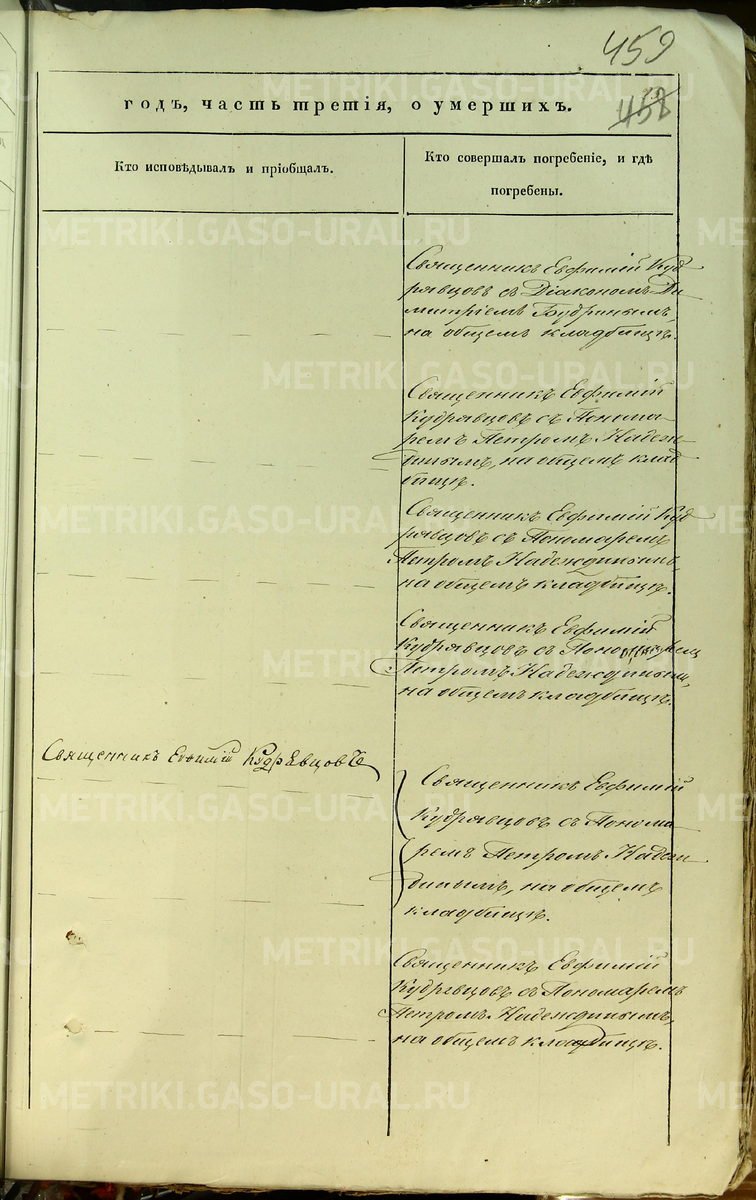 459
458
годъ, часть третія, о умершихъ.
Кто исповѣдывалъ и пріобщалъ.
Кто совершалъ погребеніе, и гдѣ
погребены.
Священникъ Евфимій Куд
рявцовъ съ Діакономъ Ди
митріемъ Будринымъ,
на общемъ кладбищѣ.
Священникъ Евфимій
Кудрявцовъ съ Понома
ремъ Петромъ Надеж
динымъ, на общемъ клад
бищѣ.
Священникъ Евфимій Куд
рявцовъ съ Пономаремъ
Петромъ Надеждинымъ,
на общемъ кладбищѣ.
Священникъ Евфимій
Кудрявцовъ съ Пономаремъ
Петромъ Надеждинымъ,
на общемъ кладбищѣ.
Священникъ Евфимій Кудрявцовъ
Священникъ Евфимій
Кудрявцовъ съ Понома
ремъ Петромъ Надеж
динымъ, на общемъ
кладбищѣ.
Священникъ Евфимій
Кудрявцовъ съ Пономаремъ
Петромъ Надеждинымъ,
на общемъ кладбищѣ.
METRIKI.GASO-URAL.RU